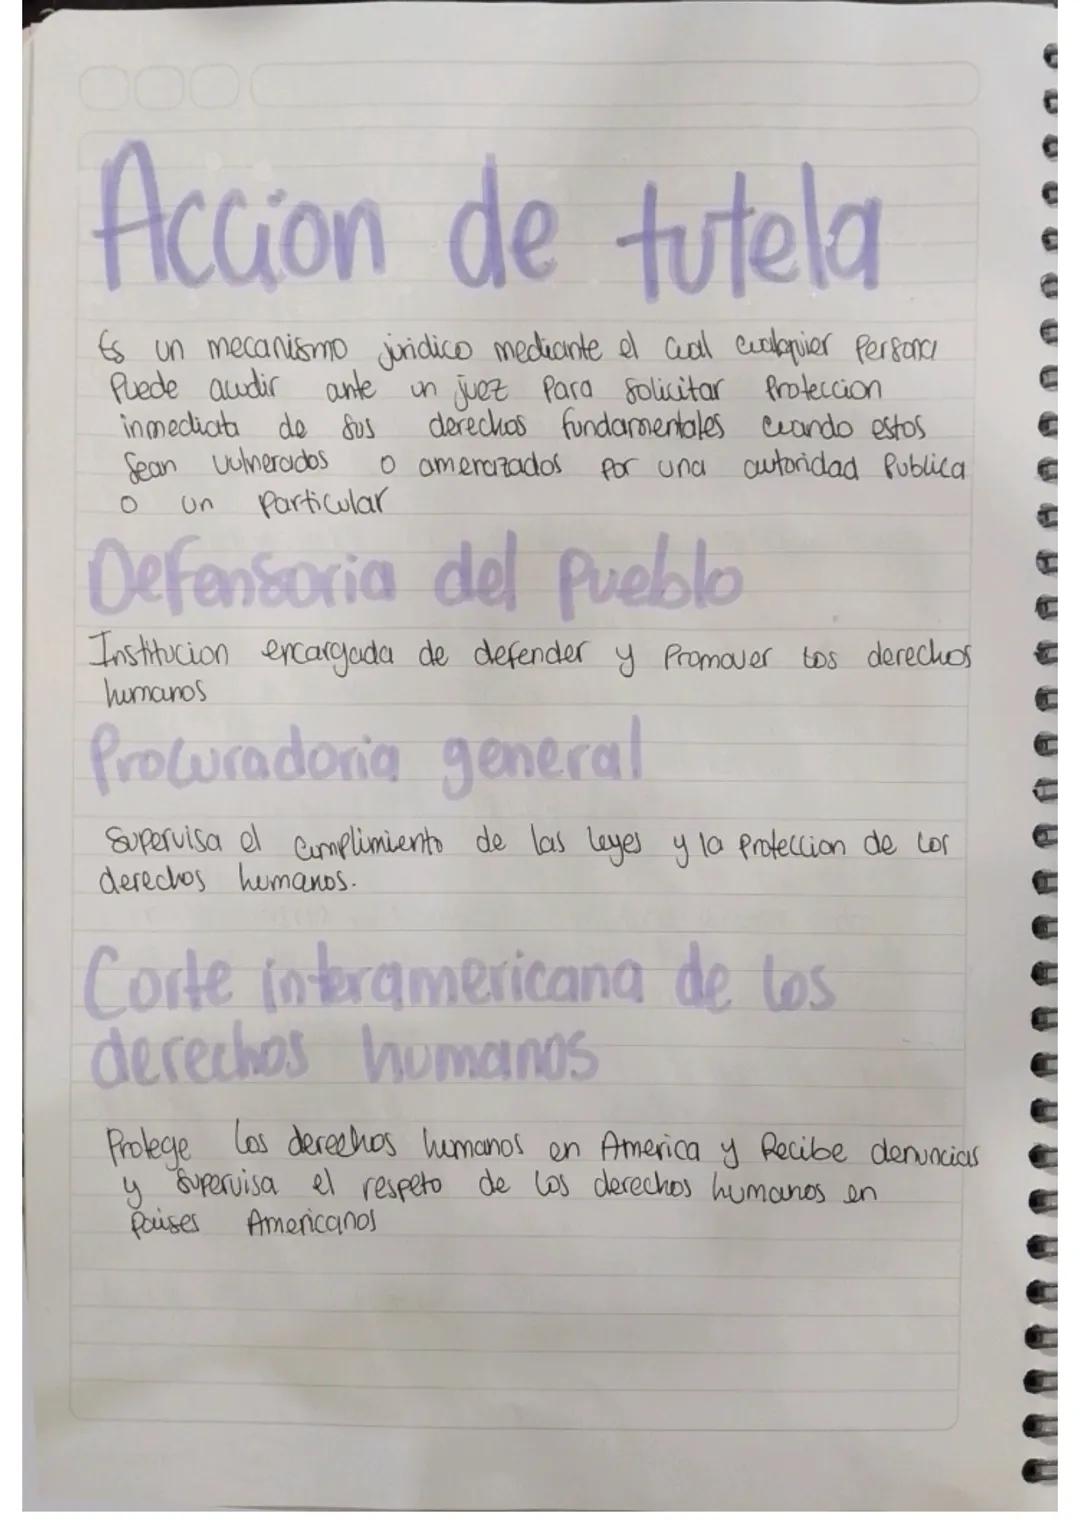 Accion de tutela
Es un mecanismo juridico mediante el cual cualquier Persona
Puede acudir ante un juez Para Solicitar Proteccion
inmediata de sus derechos fundamentales cuando estos
Sean vulnerados o amenazados Por una autoridad Publica
o un Particular
Defensoria del Pueblo
Institucion encargada de defender y Promover los derechos
humanos
Procuradoria general
Supervisa el cumplimiento de las leyes y la Proteccion de los
derechos humanos.
Corte interamericana de los
derechos humanos
Protege los derechos humanos en America y Recibe denuncias
y Supervisa el respeto de los derechos humanos en
Paises Americanos